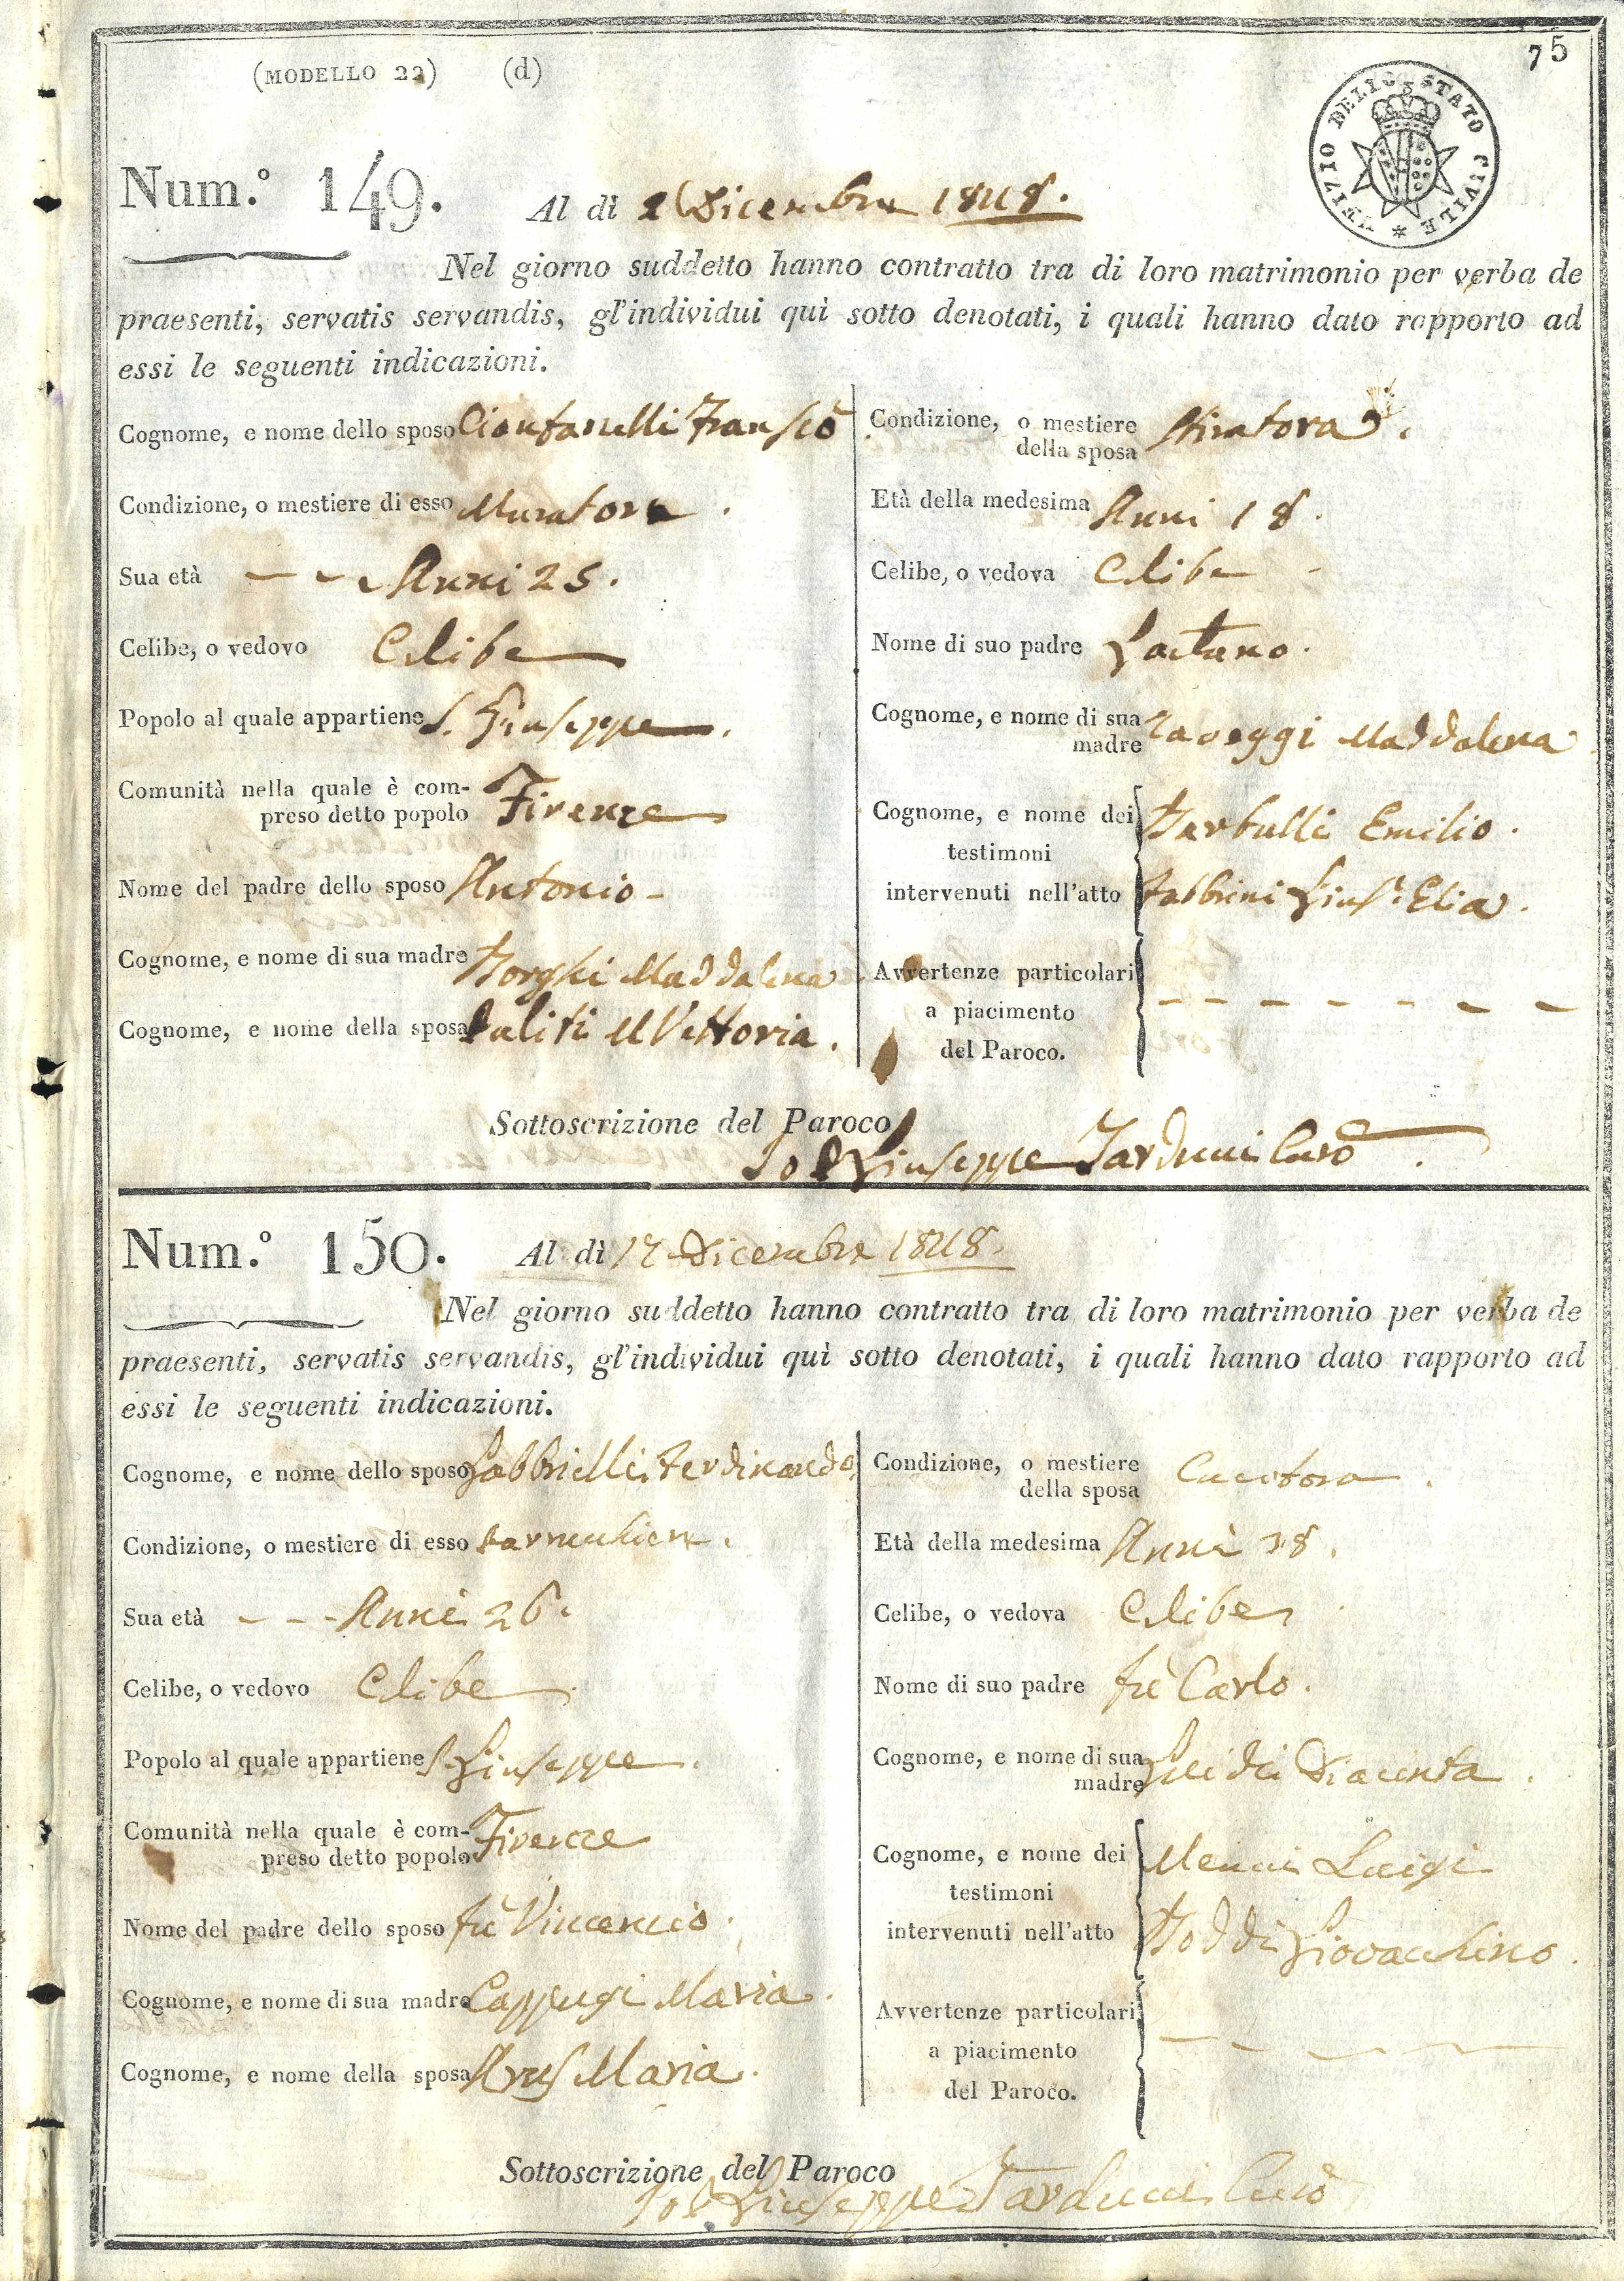 75
(MODELLO 22) (d)
UFIZIO DELLO STATO CIVILE *
Num.º 149.
Al dì 2 Dicembre 1848.
Nel giorno suddetto hanno contratto tra di loro matrimonio per verba de
praesenti, servatis servandis, gl'individui quì sotto denotati, i quali hanno dato rapporto ad
essi le seguenti indicazioni.
Cognome, e nome dello sposo
Condizione, o mestiere di esso Muratore.
Sua età - - - Anni 25.
Celibe, o vedovo Celibe
Popolo al quale appartiene S. Giuseppe.
Comunità nella quale è com-
preso detto popolo Firenze
Nome del padre dello sposo Antonio -
Cognome, e nome di sua madre Borghi Maddalena
Cognome, e nome della sposa Vittoria.
Condizione, o mestiere
della sposa Stiratora.
Età della medesima Anni 18.
Celibe, o vedova Celibe -
Nome di suo padre Gaetano.
Cognome, e nome di sua
madre Raveggi Maddalena
Cognome, e nome dei Emilio.
testimoni
intervenuti nell'atto Fabbrini Elia.
Avvertenze particolari
a piacimento - - - - - - -
del Paroco.
Sottoscrizione del Paroco
Giuseppe Tarducci Curº.
Num.º 150.
Al dì 17 Dicembre 1848.
Nel giorno suddetto hanno contratto tra di loro matrimonio per verba de
praesenti, servatis servandis, gl'individui quì sotto denotati, i quali hanno dato rapporto ad
essi le seguenti indicazioni.
Cognome, e nome dello sposo Gabbrielli Ferdinando
Condizione, o mestiere di esso
Sua età - - - Anni 26.
Celibe, o vedovo Celibe
Popolo al quale appartiene S. Giuseppe.
Comunità nella quale è com-
preso detto popolo Firenze
Nome del padre dello sposo fù Vincenzio.
Cognome, e nome di sua madre Cappugi Maria.
Cognome, e nome della sposa Maria.
Condizione, o mestiere
della sposa Cucitora.
Età della medesima Anni
Celibe, o vedova Celibe
Nome di suo padre fù Carlo.
Cognome, e nome di sua
madre Guidi Giacinta.
Cognome, e nome dei Menci Luigi
testimoni
intervenuti nell'atto Boddi Giovacchino.
Avvertenze particolari
a piacimento - - - - -
del Paroco.
Sottoscrizione del Paroco
Giuseppe Tarducci Curº